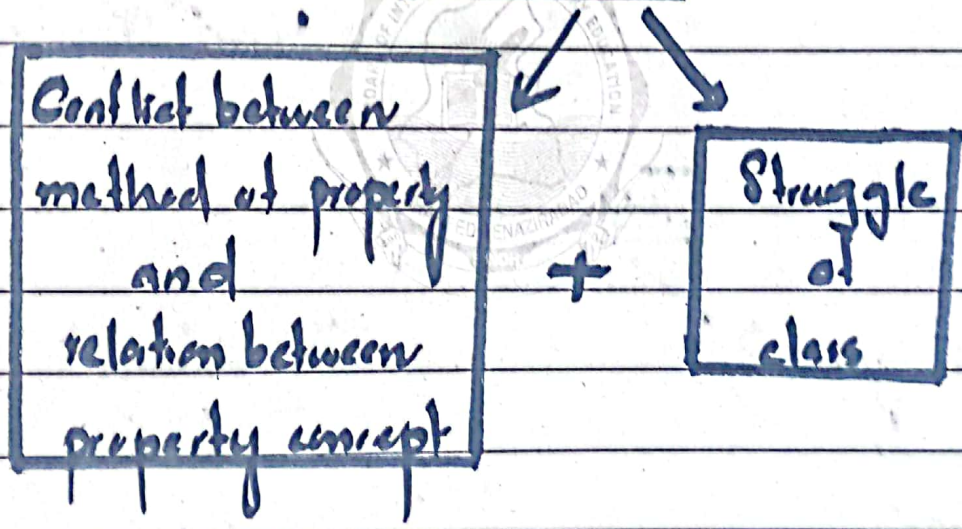 Conflict between
method of property
and
relation between
property concept
+
Struggle
of
class
EDUCATION